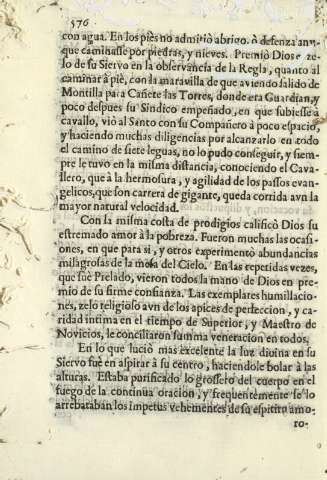 576
con agua. En los piès no admitiò abrigo, ò defenza aun-
que caminasse por piedras, y nieves. Premiò Dios e ze-
lo de su Siervo en la observancia de la Regla, quanto al
caminar à piè, con la maravilla de que aviendo salido de
Montilla para Cañete las Torres, donde era Guardian, y
poco despues su Sindico empeñado, en que subiesse à
cavallo, viò al Santo con su Compañero à poco espacio,
y haciendo muchas diligencias por alcanzarlo en todo
el camino de siete leguas, no lo pudo conseguir, y siem-
pre le tuvo en la misma distancia, conociendo el Cava-
llero, que à la hermosura, y agilidad de los passos evan-
gelicos, que son carrera de gigante, queda corrida aun la
mayor natural velocidad.
Con la misma costa de prodigios calificò Dios su
estremado amor à la pobreza. Fueron muchas las ocasi-
ones, en que para si, y otros experimentò abundancias
milagrosas de la mesa del Cielo. En las repetidas veces,
que fuè Prelado, vieron todos la mano de Dios en pre-
mio de su firme confianza. Las exemplares humillacio-
nes, zelo religioso aun de los apices de perfeccion, y ca-
ridad intima en el tiempo de Superior, y Maestro de
Novicios, le conciliaron summa veneracion en todos.
En lo que luciò mas excelente la luz divina en su
Siervo fuè en aspirar à su centro, haciendole bolar à las
alturas. Estaba purificado lo grossero del cuerpo en el
fuego de la continua oracion, y frequentemente se lo
arrebataban los impetus vehementes de su espiritu amo-
ro-